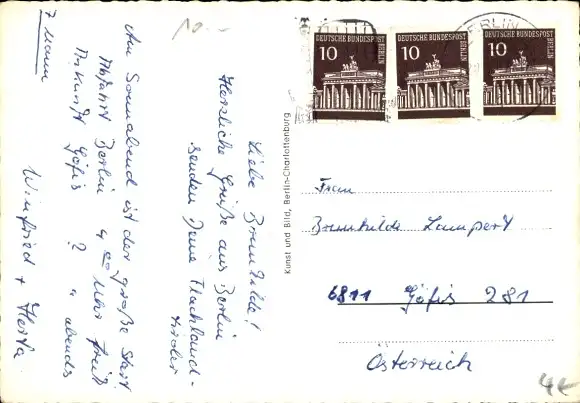 10.-
Liebe Brunhilde!
Herzliche Grüße aus Berlin
senden Deine Flachland-
tiroler
Am Sonnabend ist der große Start
Abfahrt Berlin 4 00 Uhr früh
Ankunft Göfis ? " abends
Winfried + Herta
7 Mann
Kunst und Bild, Berlin-Charlottenburg
DEUTSCHE BUNDESPOST
BERLIN
10
DEUTSCHE BUNDESPOST
BERLIN
10
DEUTSCHE BUNDESPOST
BERLIN
10
BERLIN
Frau
Brunhilde Lampert
6811 Göfis 281
Österreich
4€